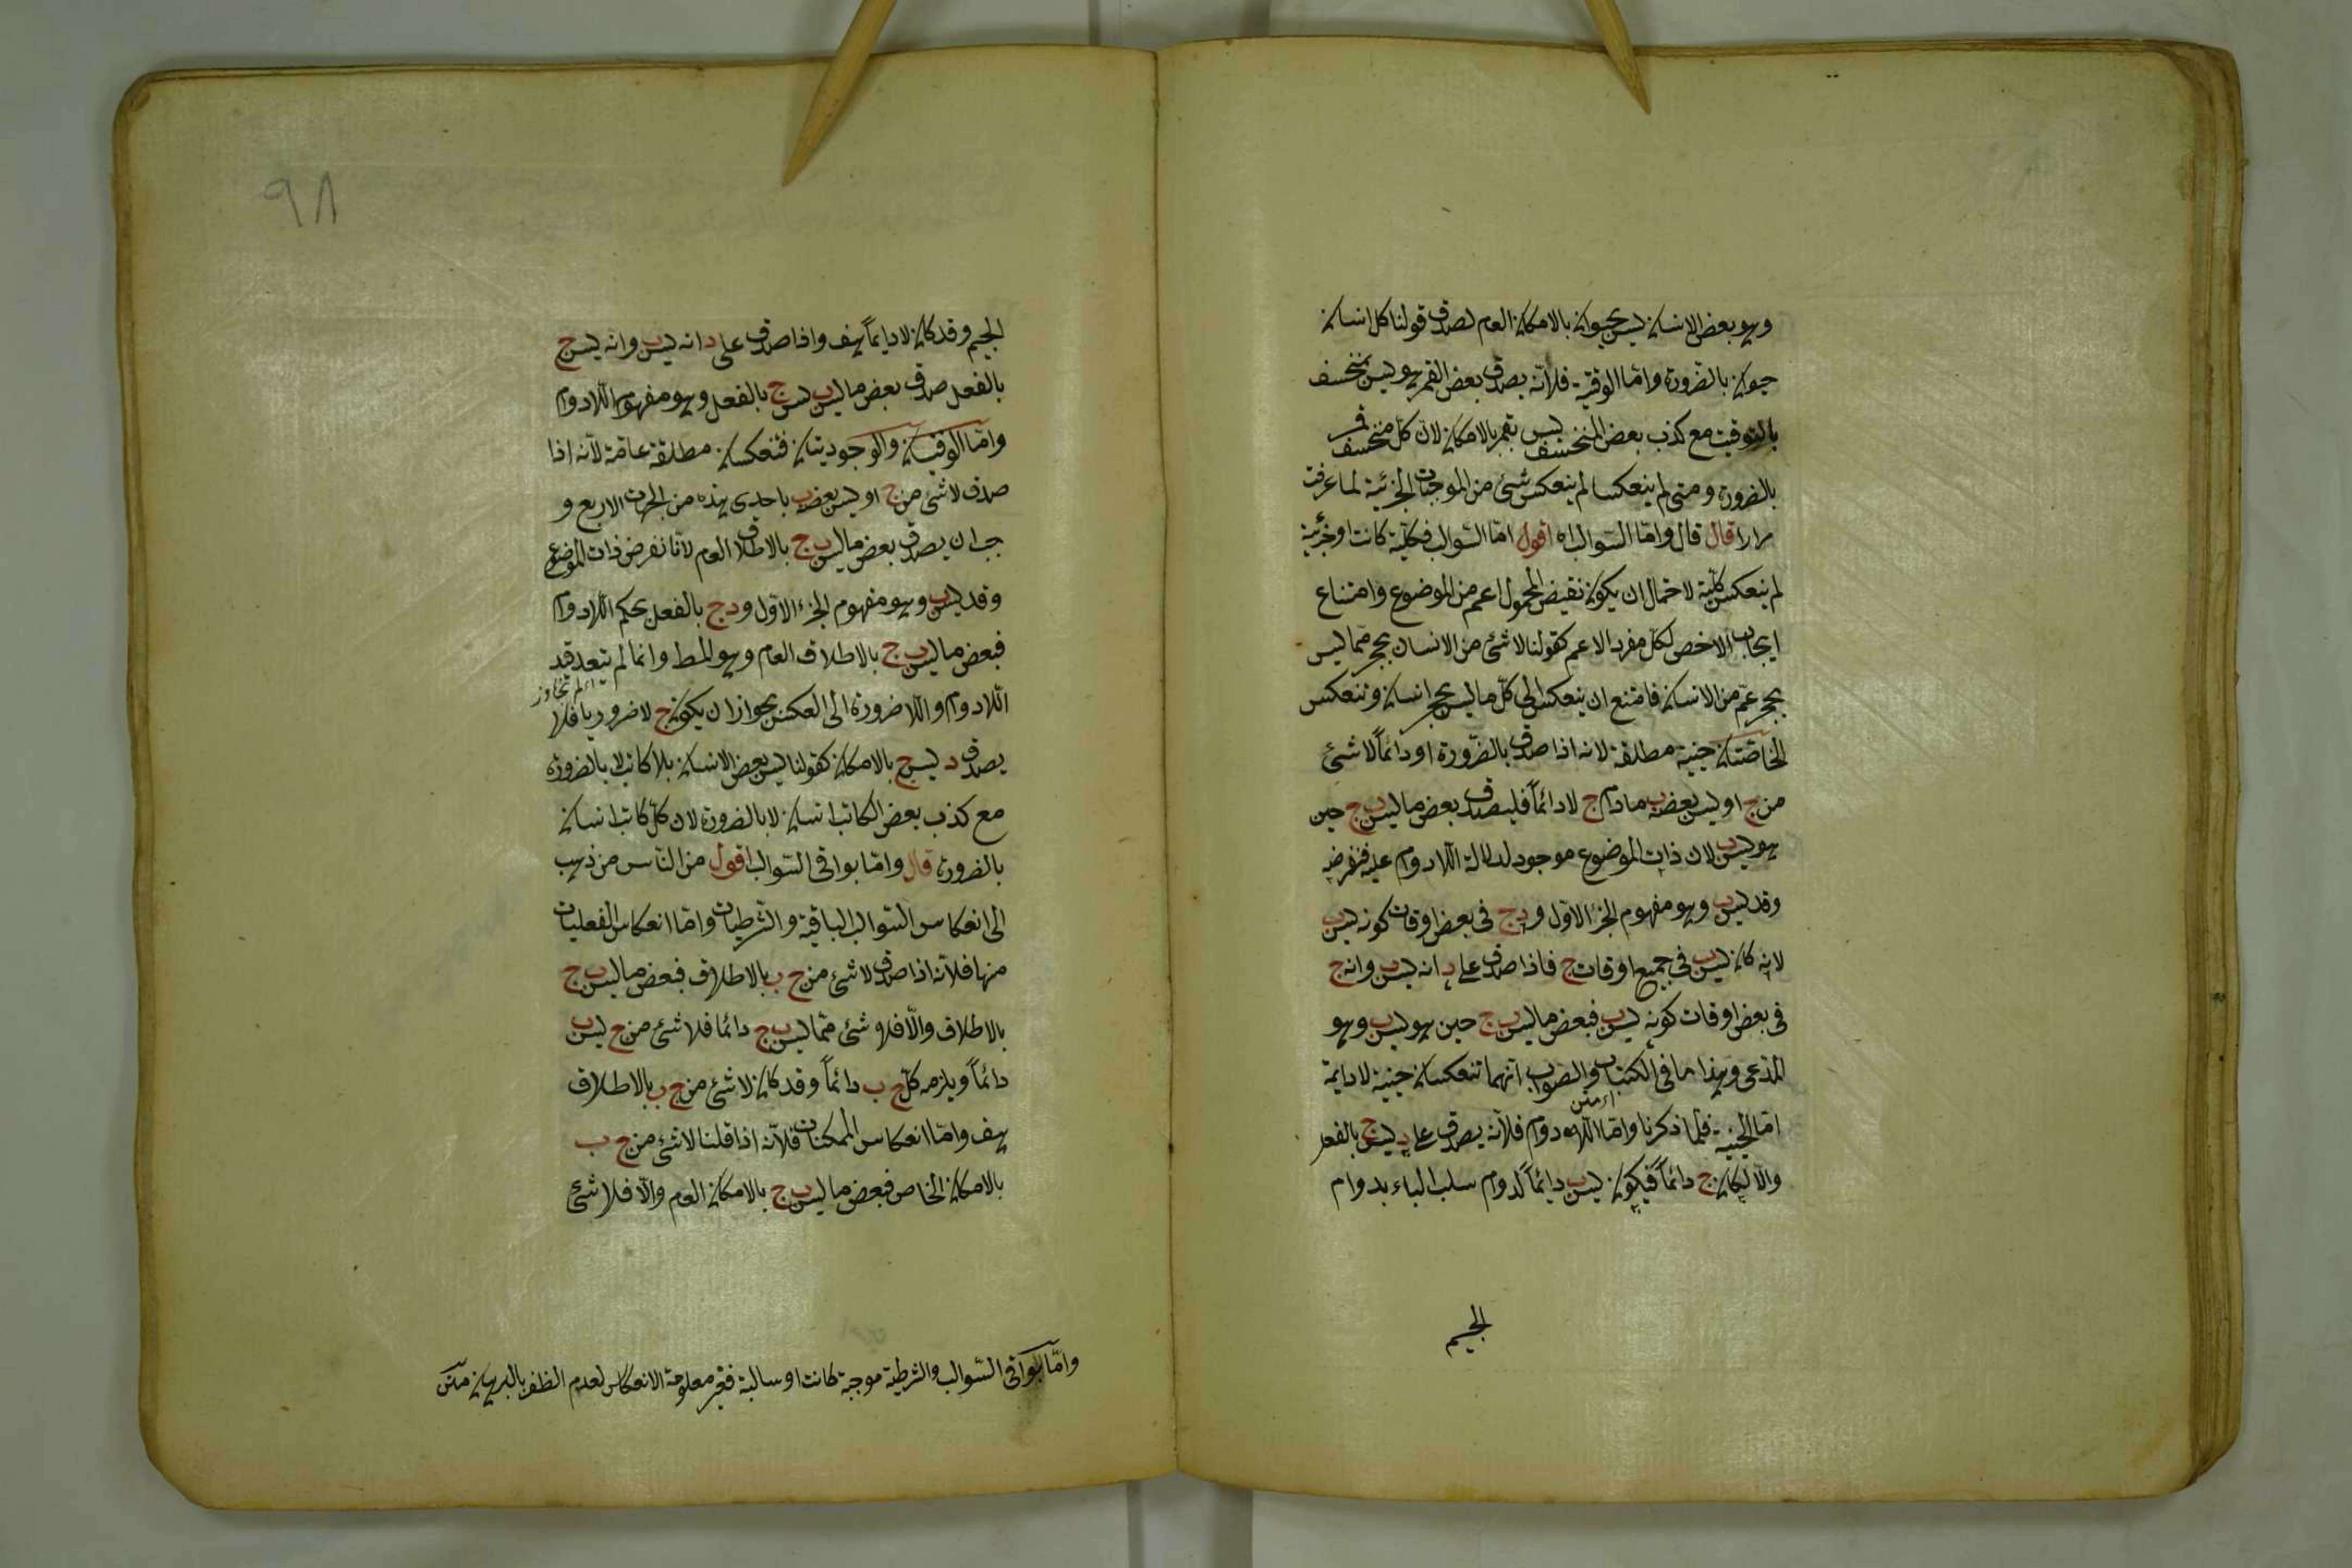 وهو بعض الانسان ليس بحيوان بالامكان العام لصدق قولنا كل انسان
حيوان بالضرورة واما الوقتية فلانه يصدق بعض القمر هو ليس بمنخسف
بالتوقيت مع كذب بعض المنخسف ليس بقمر بالامكان لان كل منخسف قمر
بالضرورة ومتى لم ينعكسا لم ينعكس شئ من الموجبات الجزئية لما عرفت
مرارا قال قال واما السوالب اه اقول اما السوالب فكلية كانت او جزئية
لم ينعكس كلية لاحتمال ان يكون نقيض المحمول اعم من الموضوع وامتناع
ايجاب الاخص لكل مفرد الاعم كقولنا لا شئ من الانسان بحجر مما ليس
بحجر عم من الانسان فامتنع ان ينعكس الى كل ما ليس بحجر انسان وتنعكس
الخاصتان حينية مطلقة لانه اذا صدق بالضرورة او دائماً لا شئ
من ج او ليس بعضه ب مادام ج لا دائماً فليصدق بعض ما ليس ب ج حين
هو ليس ب لان ذات الموضوع موجود لدلالة اللادوام عليه فنفرضه
وقد ليس ب وهو مفهوم الجزء الاول ود ج فى بعض اوقات كونه ليس ب
لانه كان ليس ب فى جميع اوقات ج فاذا صدق على د انه ليس ب وانه ج
فى بعض اوقات كونه ليس ب فبعض ما ليس ب ج حين هو ليس ب وهو
المدعى وهذا ما فى الكتاب والصواب انهما تنعكسان حينية لا دايمة
اما الحينية فلما ذكرنا واما اللادوام فلانه يصدق على د ليس ج بالفعل
والا لكان ج دائماً فيكون ليس ب دايماً لدوام سلب الباء بدوام
الجيم
٩٨
الجيم وقد كان لا دايماً هف واذا صدق على د انه ليس ب وانه ليس ج
بالفعل صدق بعض ما ليس ب ليس ج بالفعل وهو مفهوم اللادوام
واما الوقتيتان والوجوديتان فتنعكسان مطلقة عامة لانه اذا
صدق لا شئ من ج او ليس بعضه ب باحدى هذه من الجهات الاربع و
جب ان يصدق بعض ما ليس ب ج بالاطلاق العام لانا نفرض ذات الموضوع
وقد ليس ب وهو مفهوم الجزء الاول ود ج بالفعل بحكم اللادوام
فبعض ما ليس ب ج بالاطلاق العام وهو المط وانما لم يتعد قيد
اى لم تجاوز
اللادوام واللاضرورة الى العكس بجواز ان يكون ج لا ضروريا فلا
يصدق د ليس ج بالامكان كقولنا ليس بعض الانسان بلا كاتب لا بالضرورة
مع كذب بعض الكاتب انسان لا بالضرورة لان كل كاتب انسان
بالضرورة قال واما بواقى السوالب اقول من الناس من ذهب
الى انعكاس السوالب الباقية والشرطيات واما انعكاس الفعليات
منها فلانه اذا صدق لا شئ من ج ب بالاطلاق فبعض ما ليس ب ج
بالاطلاق والا فلا شئ مما ليس ب ج دائما فلا شئ من ج ليس ب
دائماً ويلزمه كل ج ب دائماً وقد كان لا شئ من ج ب بالاطلاق
هف واما انعكاس الممكنات فلانه اذا قلنا لا شئ من ج ب
بالامكان الخاص فبعض ما ليس ب ج بالامكان العام والا فلا شئ
واما بواقى السوالب والشرطية موجبة كانت او سالبة فغير معلومة الانعكاس لعدم الظفر بالبرهان متن